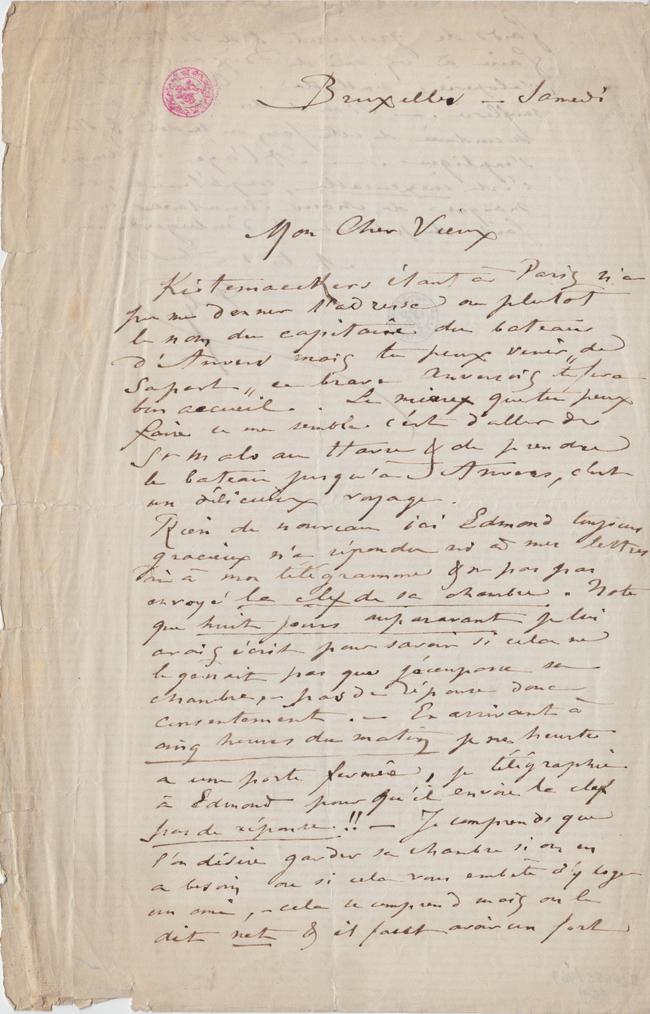 Bruxelles – Samedi
Mon Cher Vieux
Kistemaeckers étant à Paris n'a
pu me donner l'adresse ou plutot
le nom du capitaine du bateau
d'Anvers mais tu peux venir „ de
Sapert „ ce brave Anversois te fera
bon accueil. Le mieux que tu peux
faire ce me semble c'est d'aller de
St malo au Havre & de prendre
le bateau jusqu'à Anvers, c'est
un délicieux voyage.
Rien de nouveau ici Edmond toujours
gracieux n'a répondu ni à mes lettres
ni à mon télégramme & n'a pas
envoyé la clef de sa chambre. Note
que huit jours auparavant je lui
avais écrit pour savoir si cela ne
le gênait pas que j'occupasse sa
chambre, – pas de réponse donc
consentement. – En arrivant à
cinq heures du matin je me heurte
a une porte fermée, je télégraphie
à Edmond pour qu'il envoie la clef
pas de réponse !! – Je comprends que
l'on désire garder sa chambre si on en
a besoin ou si cela vous embête d'y loger
un ami, – cela se comprend mais on le
dit net & il faut avoir un fort